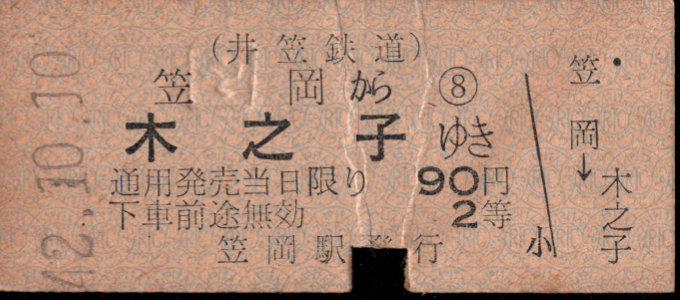 42.10.10
(井笠鉄道)
笠岡から ⑧
木之子ゆき
通用発売当日限り 90円
下車前途無効 2等
笠岡駅発行
笠岡→木之子
小